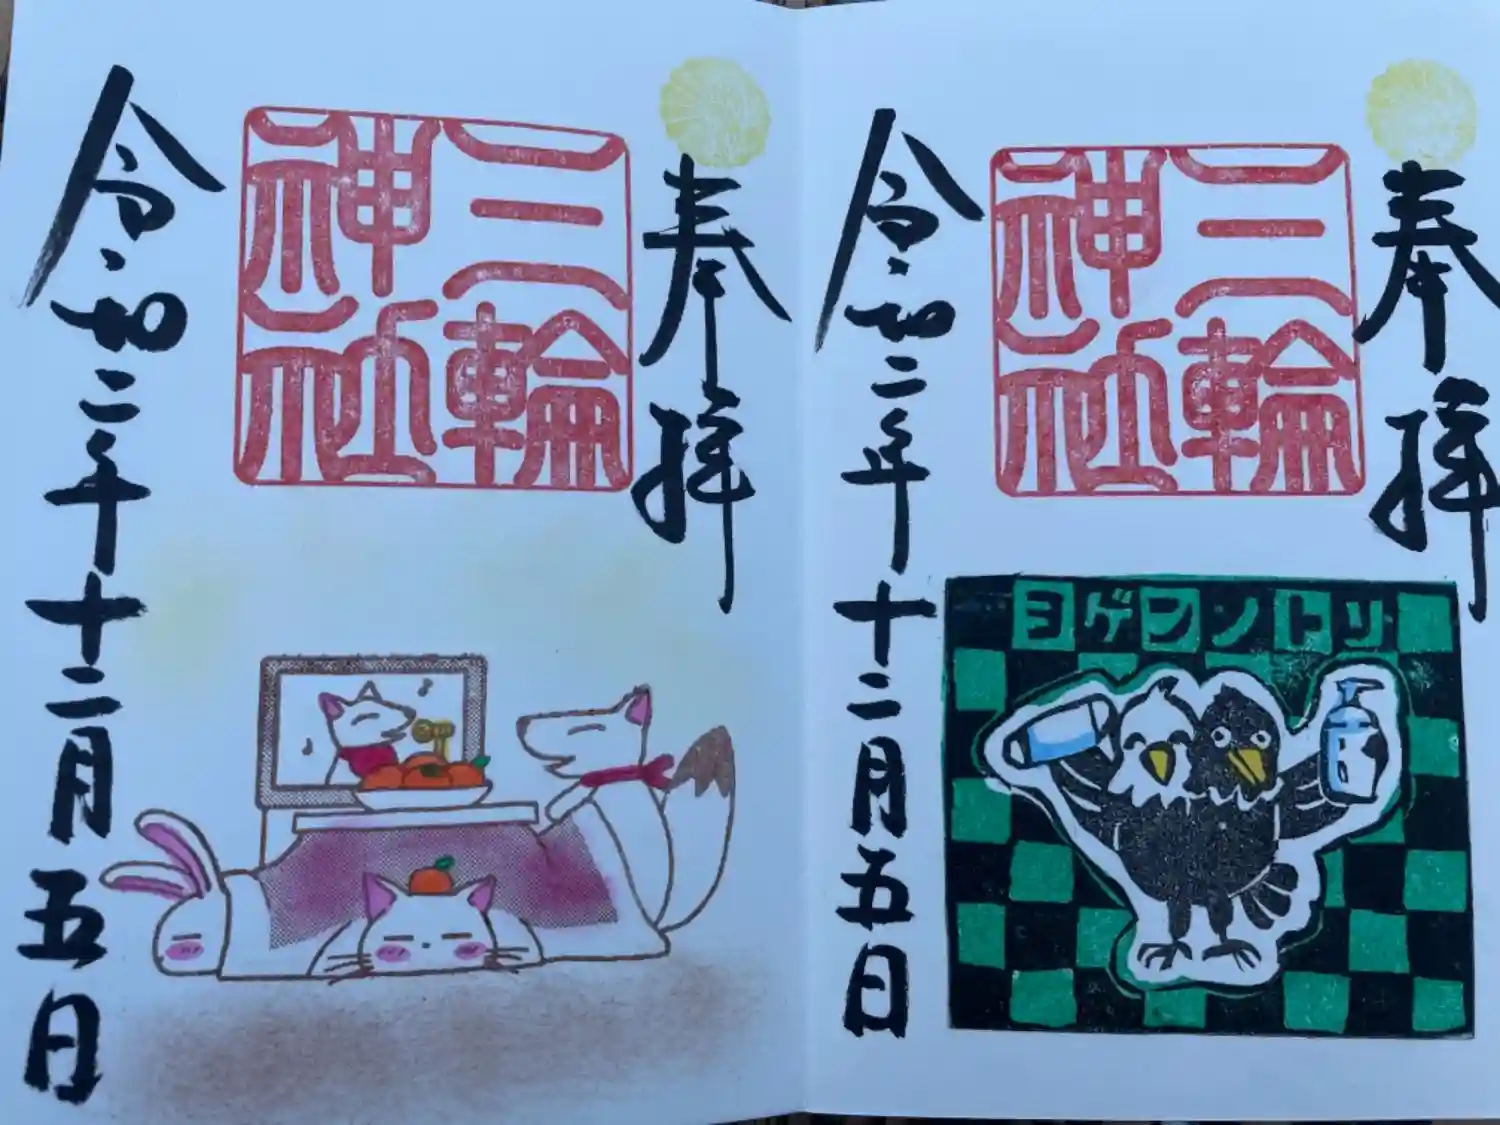 奉拝
三輪
神社
令和二年十二月五日
ヨゲンノトリ
奉拝
三輪
神社
令和二年十二月五日